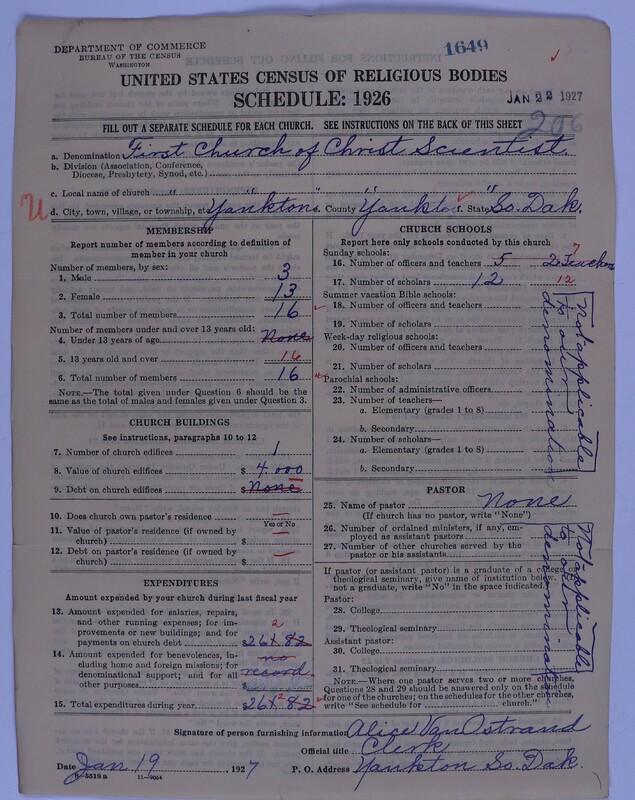 1649
DEPARTMENT OF COMMERCE
BUREAU OF THE CENSUS
WASHINGTON
UNITED STATES CENSUS OF RELIGIOUS BODIES
SCHEDULE: 1926
JAN 22 1927
FILL OUT A SEPARATE SCHEDULE FOR EACH CHURCH. SEE INSTRUCTIONS ON THE BACK OF THIS SHEET
206
a. Denomination First Church of Christ Scientist.
b. Division (Association, Conference,
Diocese, Presbytery, Synod, etc.)
c. Local name of church " " " " "
U d. City, town, village, or township, etc. Yankton e. County Yankton f. State So. Dak.
MEMBERSHIP
Report number of members according to definition of
member in your church
Number of members, by sex:
1. Male 3
2. Female 13
3. Total number of members 16
Number of members under and over 13 years old:
4. Under 13 years of age None
5. 13 years old and over 16
6. Total number of members 16
NOTE.—The total given under Question 6 should be
same as the total of males and females given under Question 3.
CHURCH BUILDINGS
See instructions, paragraphs 10 to 12
7. Number of church edifices 1
8. Value of church edifices $ 4.000
9. Debt on church edifices $ None
10. Does church own pastor's residence —
Yes or No
11. Value of pastor's residence (if owned by
church) $ —
12. Debt on pastor's residence (if owned by
church) $ —
EXPENDITURES
Amount expended by your church during last fiscal year
13. Amount expended for salaries, repairs,
and other running expenses; for im-
provements or new buildings; and for
payments on church debt $ 261.82 2
14. Amount expended for benevolences, in-
cluding home and foreign missions; for
denominational support; and for all
other purposes $ no
record
15. Total expenditures during year $ 261.82 2
CHURCH SCHOOLS
Report here only schools conducted by this church
Sunday schools:
16. Number of officers and teachers 5 2 Teachers 7
17. Number of scholars 12 12
Summer vacation Bible schools:
18. Number of officers and teachers
19. Number of scholars
Week-day religious schools:
20. Number of officers and teachers
21. Number of scholars
Parochial schools:
22. Number of administrative officers
23. Number of teachers—
a. Elementary (grades 1 to 8)
b. Secondary
24. Number of scholars—
a. Elementary (grades 1 to 8)
b. Secondary
Not applicable
to our
denomination
PASTOR
25. Name of pastor None
(If church has no pastor, write "None")
26. Number of ordained ministers, if any, em-
ployed as assistant pastors
27. Number of other churches served by the
pastor or his assistants
If pastor (or assistant pastor) is a graduate of a college or
theological seminary, give name of institution below. If
not a graduate, write "No" in the space indicated.
Pastor:
28. College
29. Theological seminary
Assistant pastor:
30. College
31. Theological seminary
NOTE.—Where one pastor serves two or more churches,
Questions 28 and 29 should be answered only on the schedule
for one of the churches; on the schedules for the other churches,
write "See schedule for church."
Not applicable
to our
denomination
Signature of person furnishing information Alice Van Ostrand
Official title Clerk
Date Jan 19, 1927 P. O. Address Yankton So. Dak.
8-5518 a 11-9064